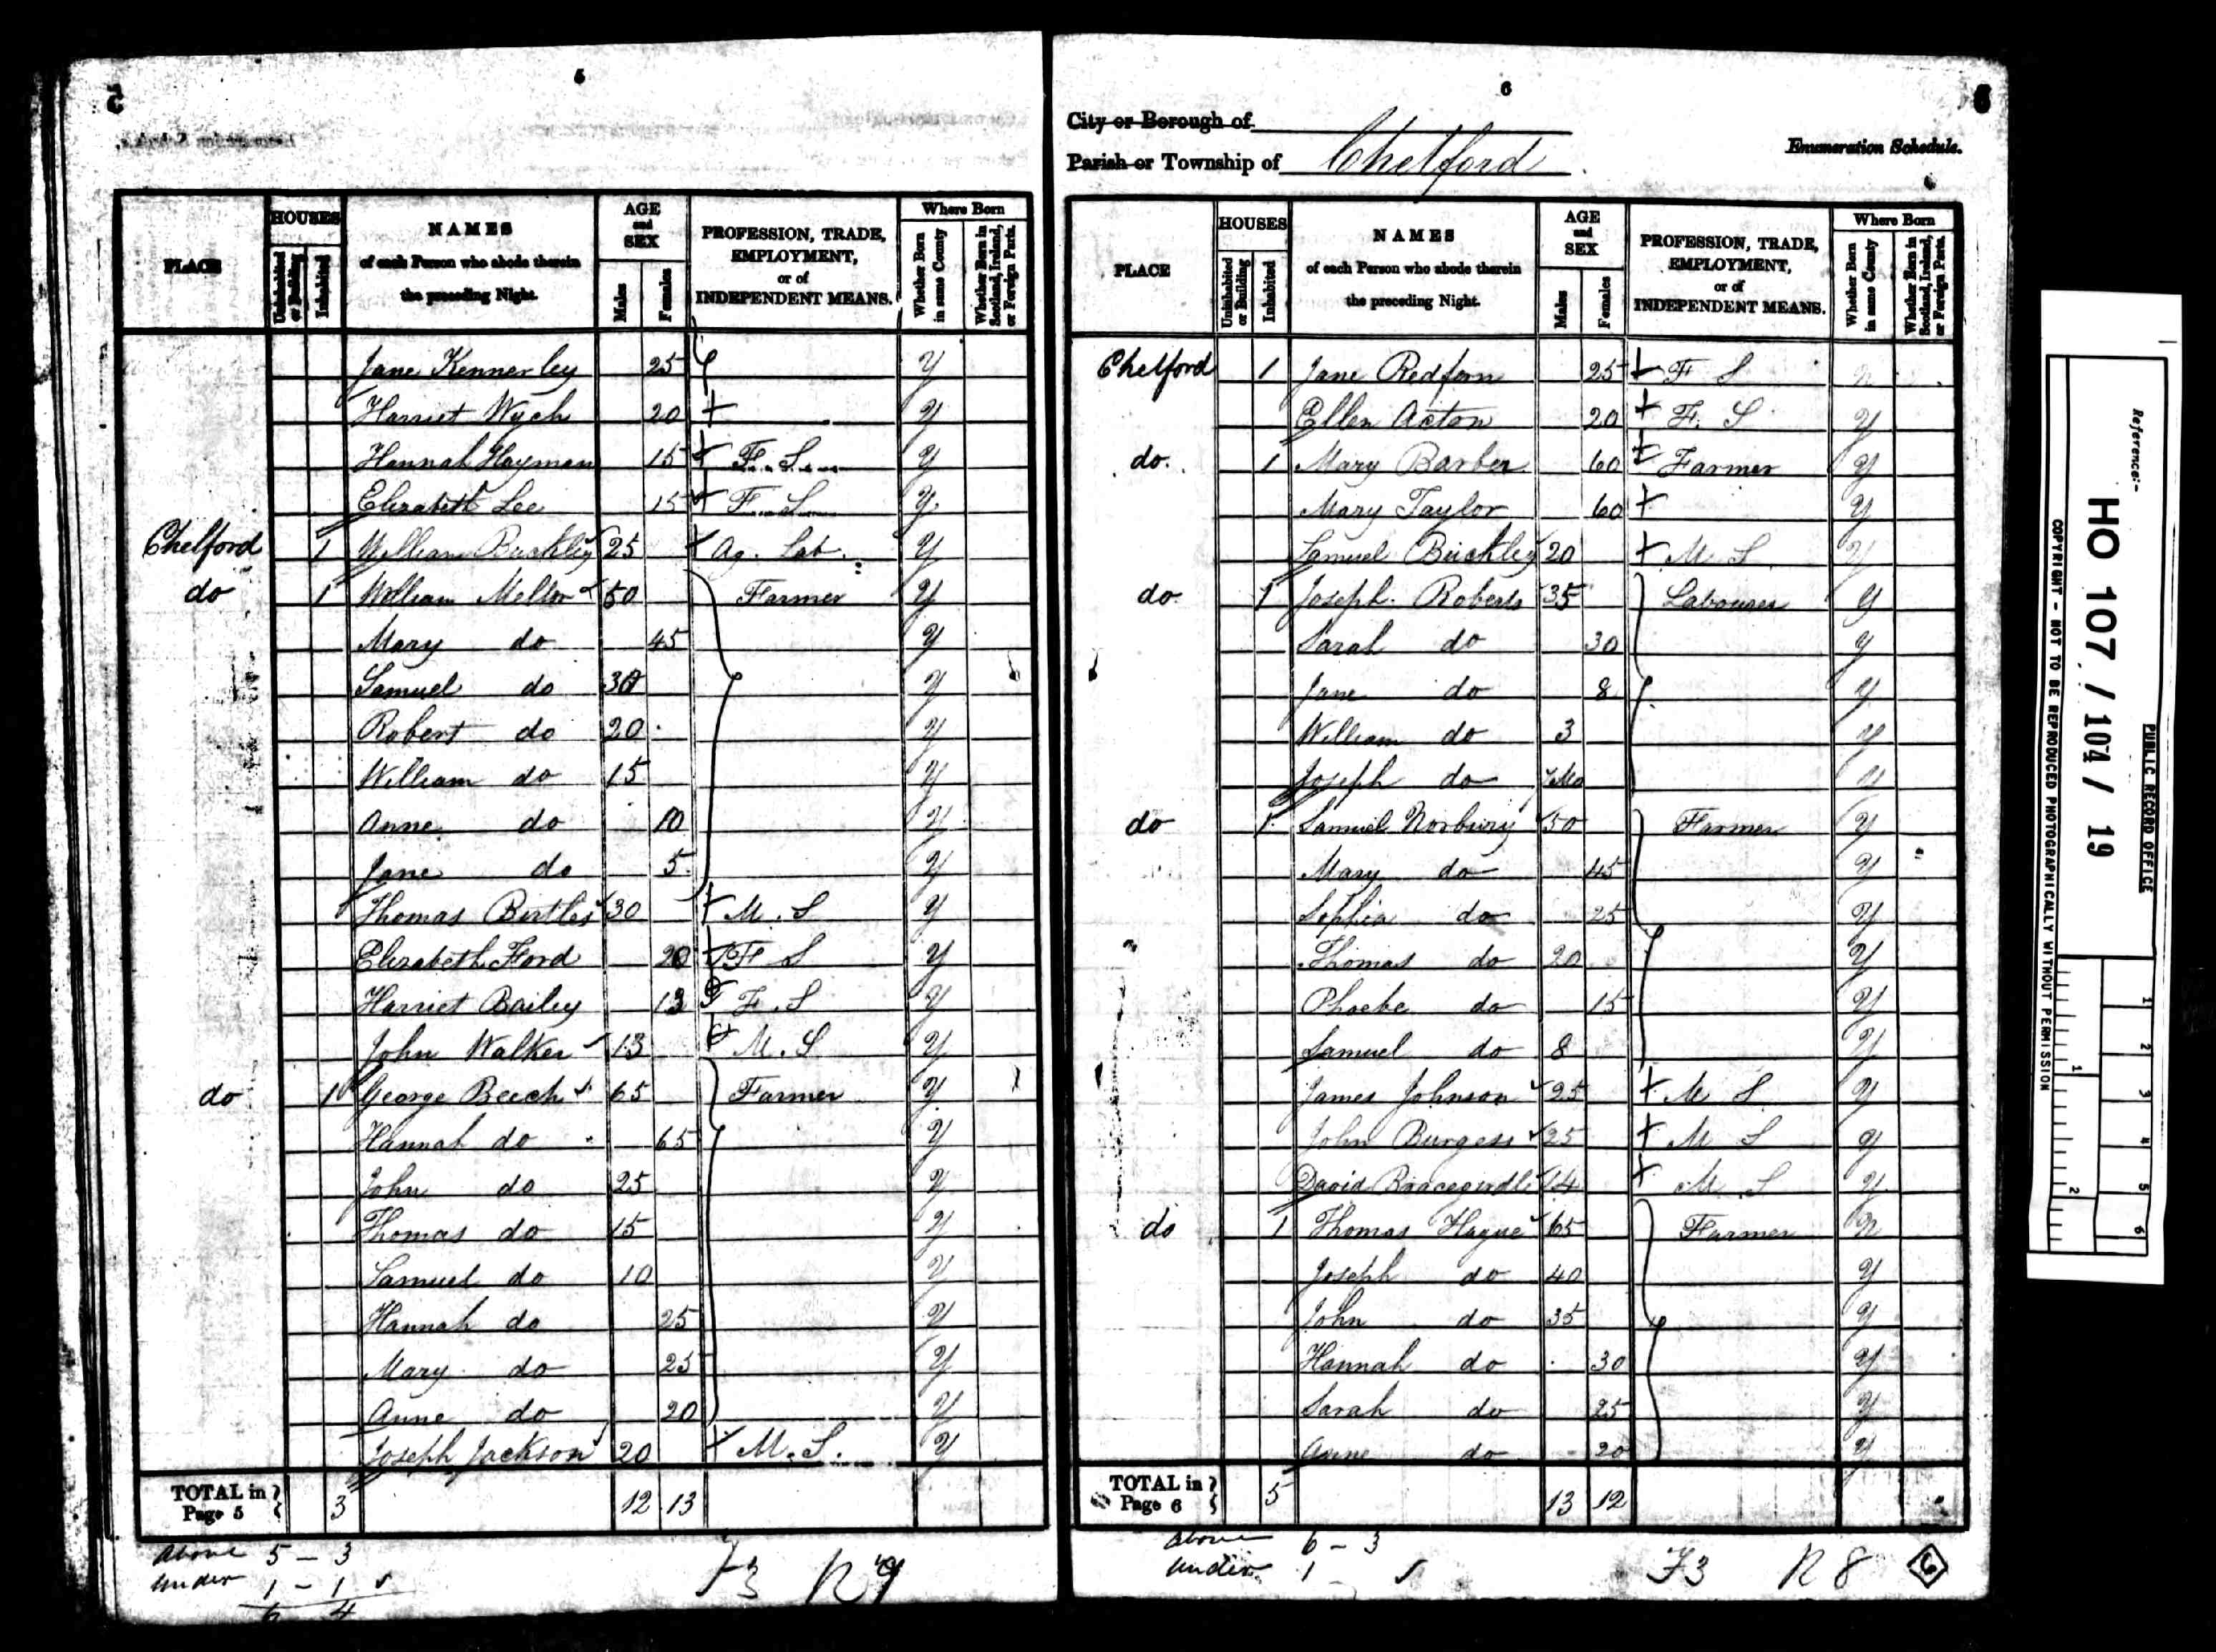 5
PLACE HOUSES Uninhabited or Building Inhabited NAMES of each Person who abode therein the preceding Night. AGE and SEX Males Females PROFESSION, TRADE, EMPLOYMENT, or of INDEPENDENT MEANS. Where Born Whether Born in same County Whether Born in Scotland, Ireland, or Foreign Parts.
Jane Kennerley 25 Y
Harriet Wych 20 + Y
Hannah Hayman 15 + F. S. Y
Elizabeth Lee 15 + F. S. Y
Chelford 1 William Buckley 25 + Ag. Lab. Y
do 1 William Mellor 50 Farmer Y
Mary do 45 Y
Samuel do 30 Y
Robert do 20 Y
William do 15 Y
Anne do 10 Y
Jane do 5 Y
Thomas Birtles 30 + M. S Y
Elizabeth Ford 20 F S Y
Harriet Bailey 13 F. S Y
John Walker 13 M. S Y
do 1 George Beech 65 Farmer Y
Hannah do 65 Y
John do 25 Y
Thomas do 15 Y
Samuel do 10 Y
Hannah do 25 Y
Mary do 25 Y
Anne do 20 Y
Joseph Jackson 20 + M. S. Y
TOTAL in Page 5 3 12 13
above 5 - 3
under 1 - 1
6 4
F3
6
City or Borough of
Parish or Township of Chelford
Enumeration Schedule.
PLACE HOUSES Uninhabited or Building Inhabited NAMES of each Person who abode therein the preceding Night. AGE and SEX Males Females PROFESSION, TRADE, EMPLOYMENT, or of INDEPENDENT MEANS. Where Born Whether Born in same County Whether Born in Scotland, Ireland, or Foreign Parts.
Chelford 1 Jane Redfern 25 + F S N
Ellen Acton 20 + F. S Y
do. 1 Mary Barber 60 + Farmer Y
Mary Taylor 60 + Y
Samuel Buckley 20 + M S Y
do. 1 Joseph Roberts 35 Labourer Y
Sarah do 30 Y
Jane do 8 Y
William do 3 Y
Joseph do 7 Mo Y
do 1 Samuel Norbury 50 Farmer Y
Mary do 45 Y
Sophia do 25 Y
Thomas do 20 Y
Phoebe do 15 Y
Samuel do 8 Y
James Johnson 25 + M S Y
John Burgess 25 + M S Y
David Bracegirdle 14 + M S Y
do 1 Thomas Hague 65 Farmer N
Joseph do 40 Y
John do 35 Y
Hannah do 30 Y
Sarah do 25 Y
Anne do 20 Y
TOTAL in Page 6 5 13 12
above 6 - 3
under 1
F3 N 8 6
Reference:-
HO 107 / 104 / 19
PUBLIC RECORD OFFICE
COPYRIGHT - NOT TO BE REPRODUCED PHOTOGRAPHICALLY WITHOUT PERMISSION
1 2 3 4 5 6
1 2